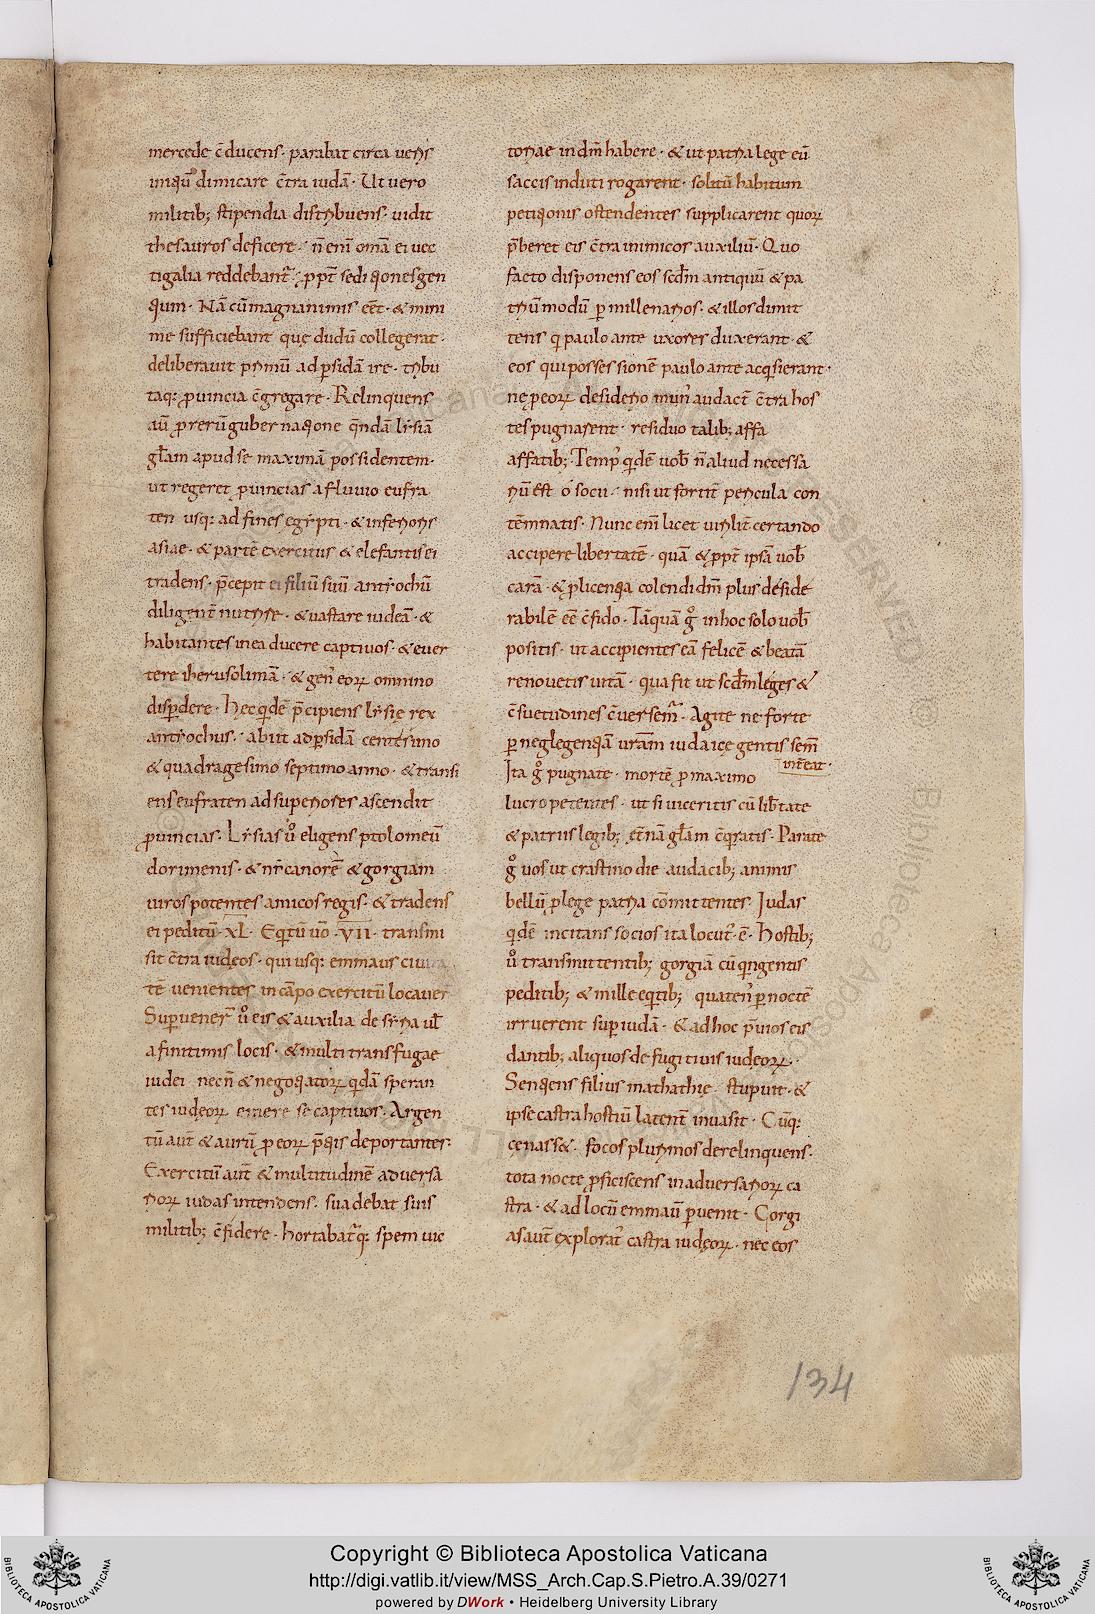 mercede c̄ducens· parabat circa ueris
iniqū dimicare c̄tra iudā· Ut uero
militib; stipendia distribuens· uidit
thesauros deficere· n̄ eni͞ om̄a ei uec
tigalia reddebant᷑· ꝓpt̄ seditionesgen
tium· Nā cū magnanimis eēt· & mini
me sufficiebant quę dudū collegerat·
deliberauit primū ad ꝑsidā ire· tribu
taq; ꝓuincia c̄gregare· Relinquens
aū ꝓ rerū gubernatione quendā lysiā
gl̄am apud se maximā possidentem·
ut regeret ꝓuincias a fluuio eufra
ten usq; ad fines egypti· & inferioris
asiae· & partē exercitus & elefantis ei
tradens· p̄cepit ei filiū suū antiochū
diligent̄ nutrire· & uastare iudeā· &
habitantes in ea ducere captiuos· & euer
tere iherusolimā· & gen᷒ eoꝝ omnino
disꝑdere· Hec qidē p̄cipiens lysię rex
antiochus· abiit ad ꝑsidā centesimo
& quadragesimo septimo anno· & transi
ens eufraten ad superiores ascendit
ꝓuincias· Lysias u͛o eligens ptolomeū
dorimenis· & nicanorē & gorgiam
uiros potentes amicos regis· & tradens
ei peditū· XL· Eqitū ūo· VII· transmi
sit c̄tra iudęos· qui usq; emmaus ciuita
tē uenientes in cāpo exercitū locauer
Superuener̄ u͛o eis & auxilia de syria ul̄
a finitimis locis· & multi transfugae
iudei necn̄ & negotiatoꝝ qidā speran
tes iudęoꝝ emere se captiuos· Argen
tū aut̄ & aurū ꝓ eoꝝ p̄tiis deportantes·
Exercitū aut̄ & multitudinē aduersa
rioꝝ iudas intendens· suadebat suis
militib; c̄fidere· hortabat᷑q; spem uic
toriae in dm̄ habere· & ut patria lege eū
saccis induti rogarent· solitū habitum
petitionis ostendentes supplicarent quoꝝ
p̄beret eis c̄tra inimicos auxiliū· Quo
facto disponens eos scd̄m antiquū & pa
triū modū ꝑ millenarios· & illos dimit
tens qi paulo ante uxores duxerant· &
eos qui possessionē paulo ante acqisierant·
ne ꝓ eoꝝ desiderio min᷒ audact̄ c̄tra hos
tes pugnarent· residuo talib; affa
affatib;· Temp᷒ qidē uob̄ n̄ aliud necessa
riū est o socii· nisi ut fortit̄ pericula con
tēmnatis· Nunc em̄ licet uirilit̄ certando
accipere libertatē· quā & ꝓpt̄ ipsā uob̄
carā· & ꝓ licentia colendi dm̄ plus deside
rabilē eē c̄fido· Tāquā g͛ in hoc solo uob̄
positis· ut accipientes eā felicē & beatā
renouetis uitā· qua fit ut scd̄m leges &
c̄suetudines c̄uersem᷑· Agite ne forte
ꝑ neglegentiā ur̄am iudaicę gentis sem̄
intereat·
Ita g͛ pugnate· mortē ꝓ maximo
lucro petentes· ut si uiceritis cū lib̄tate
& patriis legib; et̄nā gl̄am c̄qiratis· Parate
g͛ uos ut crastino die audacib; animis
bellū ꝓ lege patria cōmittentes· Judas
qidē incitans socios ita locut᷒· ē· Hostib;
u͛o transmittentib; gorgiā cū qingentis
peditib; & mille eqitib; quaten᷒ ꝑ noctē
irruerent sup iudā· & ad hoc p̄uios eis
dantib; aliquos de fugitiuis iudęoꝝ··
Sentiens filius mathathię· stupuit· &
ipse castra hostiū latent̄ inuasit· Cūq;
cęnass&· focos plurimos derelinquens·
tota nocte ꝓficiscens in aduersarioꝝ ca
stra· & ad locū emmaū ꝑuenit· Gorgi
as aut̄ explorat᷒ castra iudęoꝝ· nec eos
134
Copyright © Biblioteca Apostolica Vaticana
http://digi.vatlib.it/view/MSS_Arch.Cap.S.Pietro.A.39/0271
powered by DWork • Heidelberg University Library
BIBLIOTECA APOSTOLICA VATICANA
BIBLIOTECA APOSTOLICA VATICANA